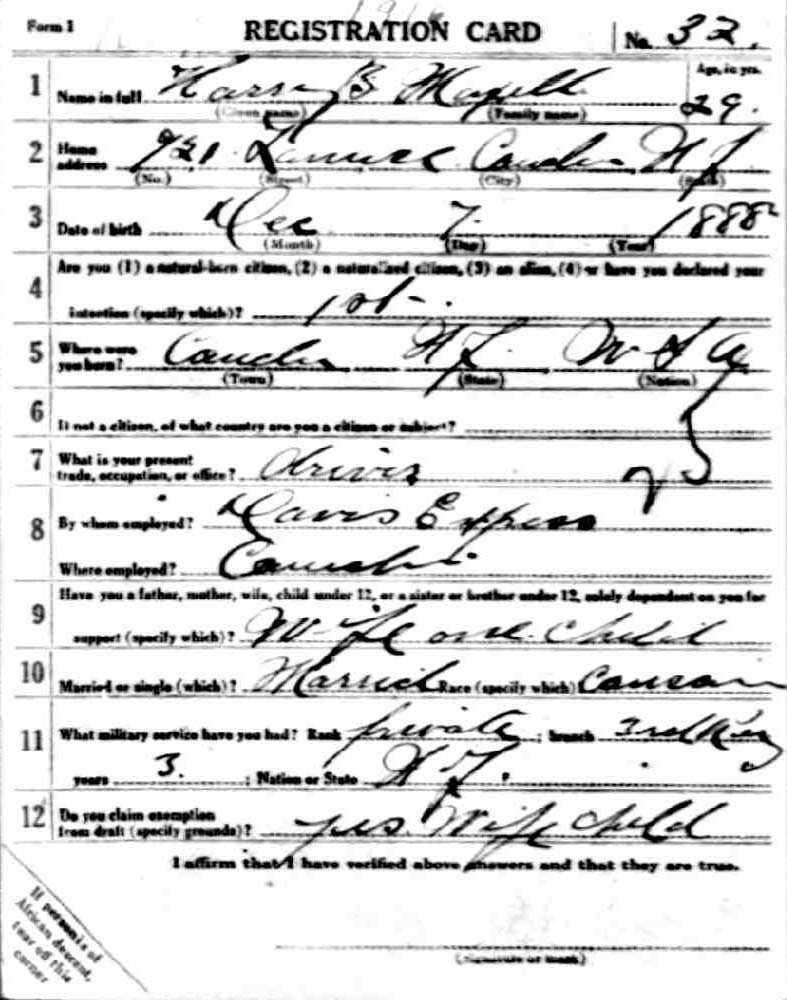 Form 1 REGISTRATION CARD No. 32.
1 Name in full Harry B Age, in yrs.
(Given name) (Family name) 29.
2 Home address 721 Camden N J
(No.) (Street) (City) (State)
3 Date of birth Dec 7 1888
(Month) (Day) (Year)
4 Are you (1) a natural-born citizen, (2) a naturalized citizen, (3) an alien, (4) or have you declared your
intention (specify which)? 1st.
5 Where were you born? Camden N J. U S A
(Town) (State) (Nation)
6 If not a citizen, of what country are you a citizen or subject?
7 What is your present
trade, occupation, or office? driver
8 By whom employed? Davis Express
Where employed? Camden
9 Have you a father, mother, wife, child under 12, or a sister or brother under 12, solely dependent on you for
support (specify which)? Wife one child
10 Married or single (which)? Married Race (specify which)
11 What military service have you had? Rank private ; branch 3rd
years 3. ; Nation or State N J.
12 Do you claim exemption
from draft (specify grounds)? yes. Wife child
I affirm that I have verified above answers and that they are true.
(Signature or mark)
If person is of
African descent,
tear off this
corner